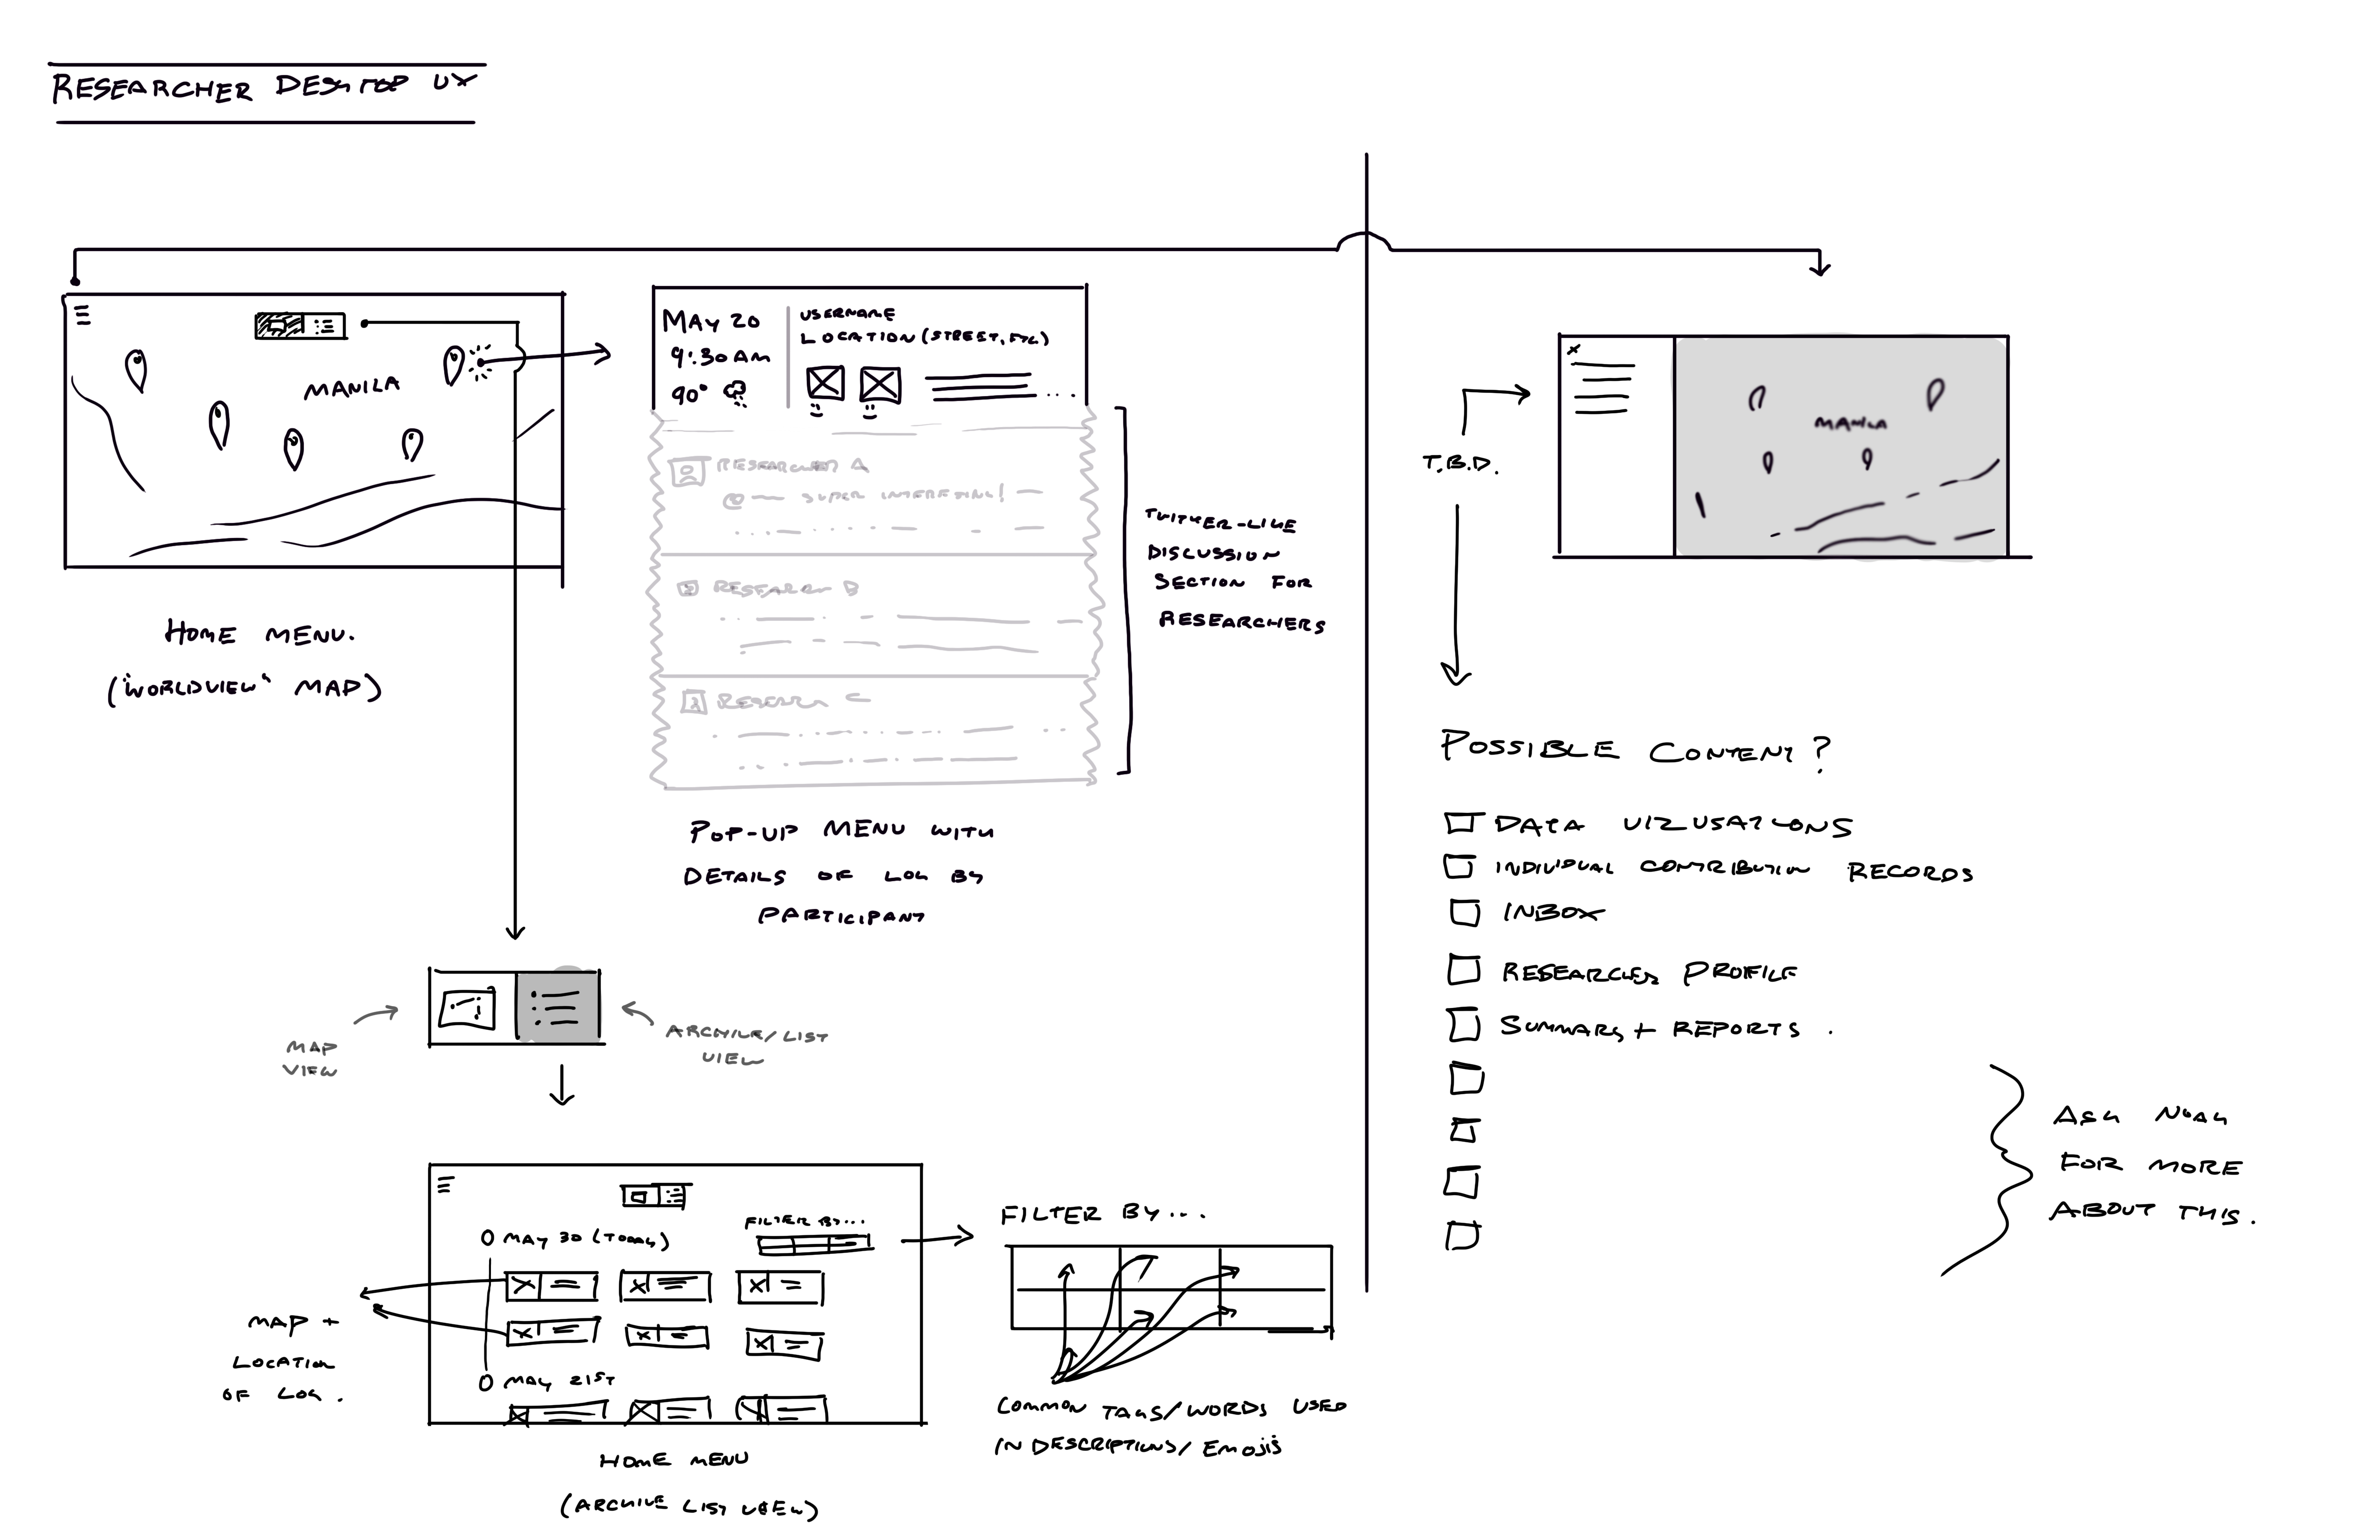 RESEARCHER DESKTOP UX
MANILA
HOME MENU.
("WORLDVIEW" MAP)
MAY 20
9:30 AM
90°
USERNAME
LOCATION (STREET, ETC)
RESEARCHER A
@ SUPER INTERESTING!
RESEARCHER B
RESEARCH C
TWITTER-LIKE
DISCUSSION
SECTION FOR
RESEARCHERS
POP-UP MENU WITH
DETAILS OF LOG BY
PARTICIPANT
MAP
VIEW
ARCHIVE/LIST
VIEW
FILTER BY...
MAY 30 (TODAY)
MAY 21ST
MAP +
LOCATION
OF LOG.
HOME MENU
(ARCHIVE LIST VIEW)
FILTER BY...
COMMON TAGS/WORDS USED
IN DESCRIPTIONS/EMOJIS
MANILA
T.B.D.
POSSIBLE CONTENT?
DATA VIZUSATIONS
INDIVIDUAL CONTRIBUTION RECORDS
INBOX
RESEARCHER PROFILE
SUMMARY + REPORTS.
ASK NOAH
FOR MORE
ABOUT THIS.